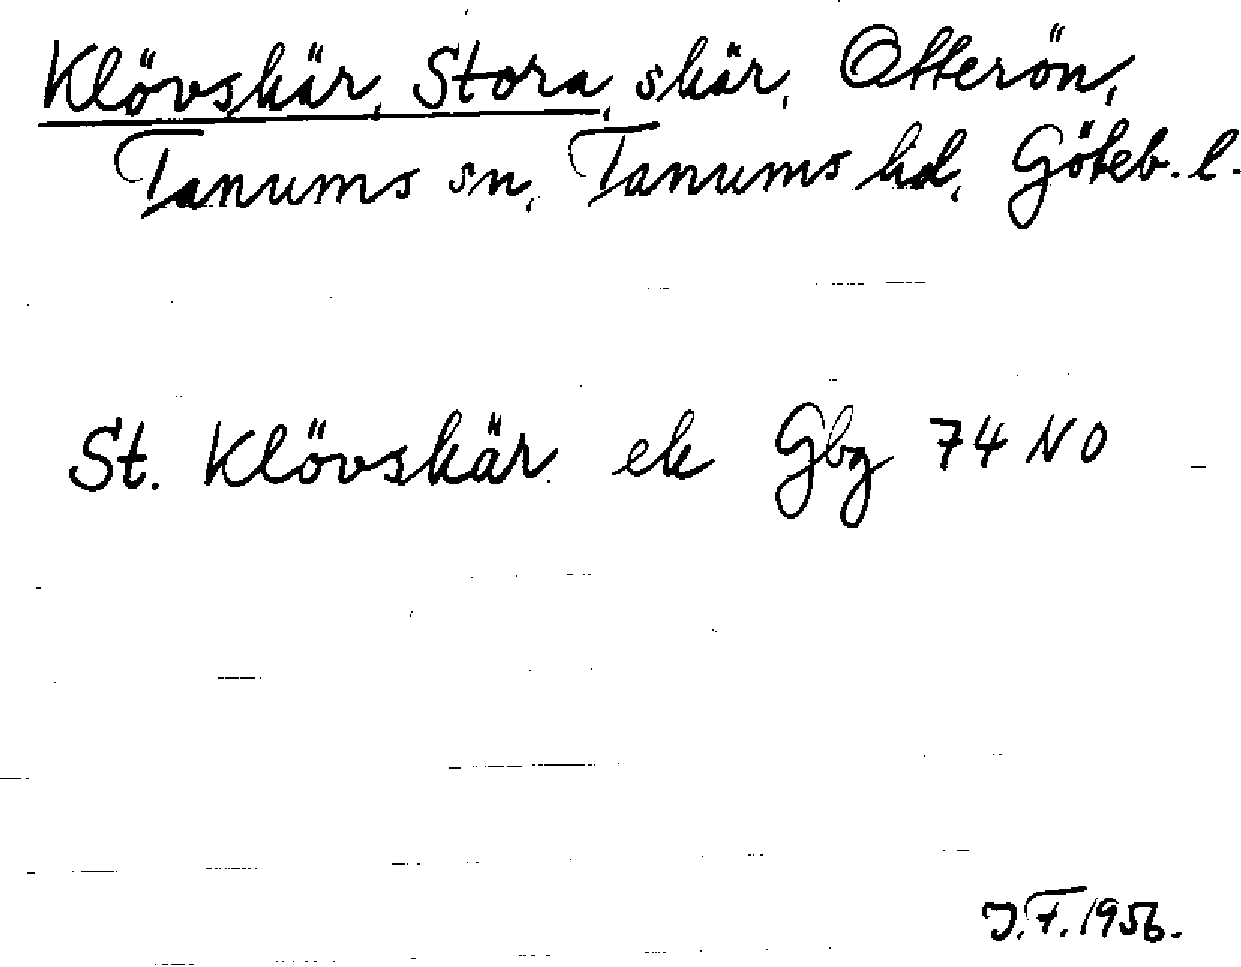 Klövskär, Stora, skär, Otterön,
Tanums sn, Tanums hd, Göteb. l.
St. Klövskär ek Gbg 74 NO
J.F. 1956.